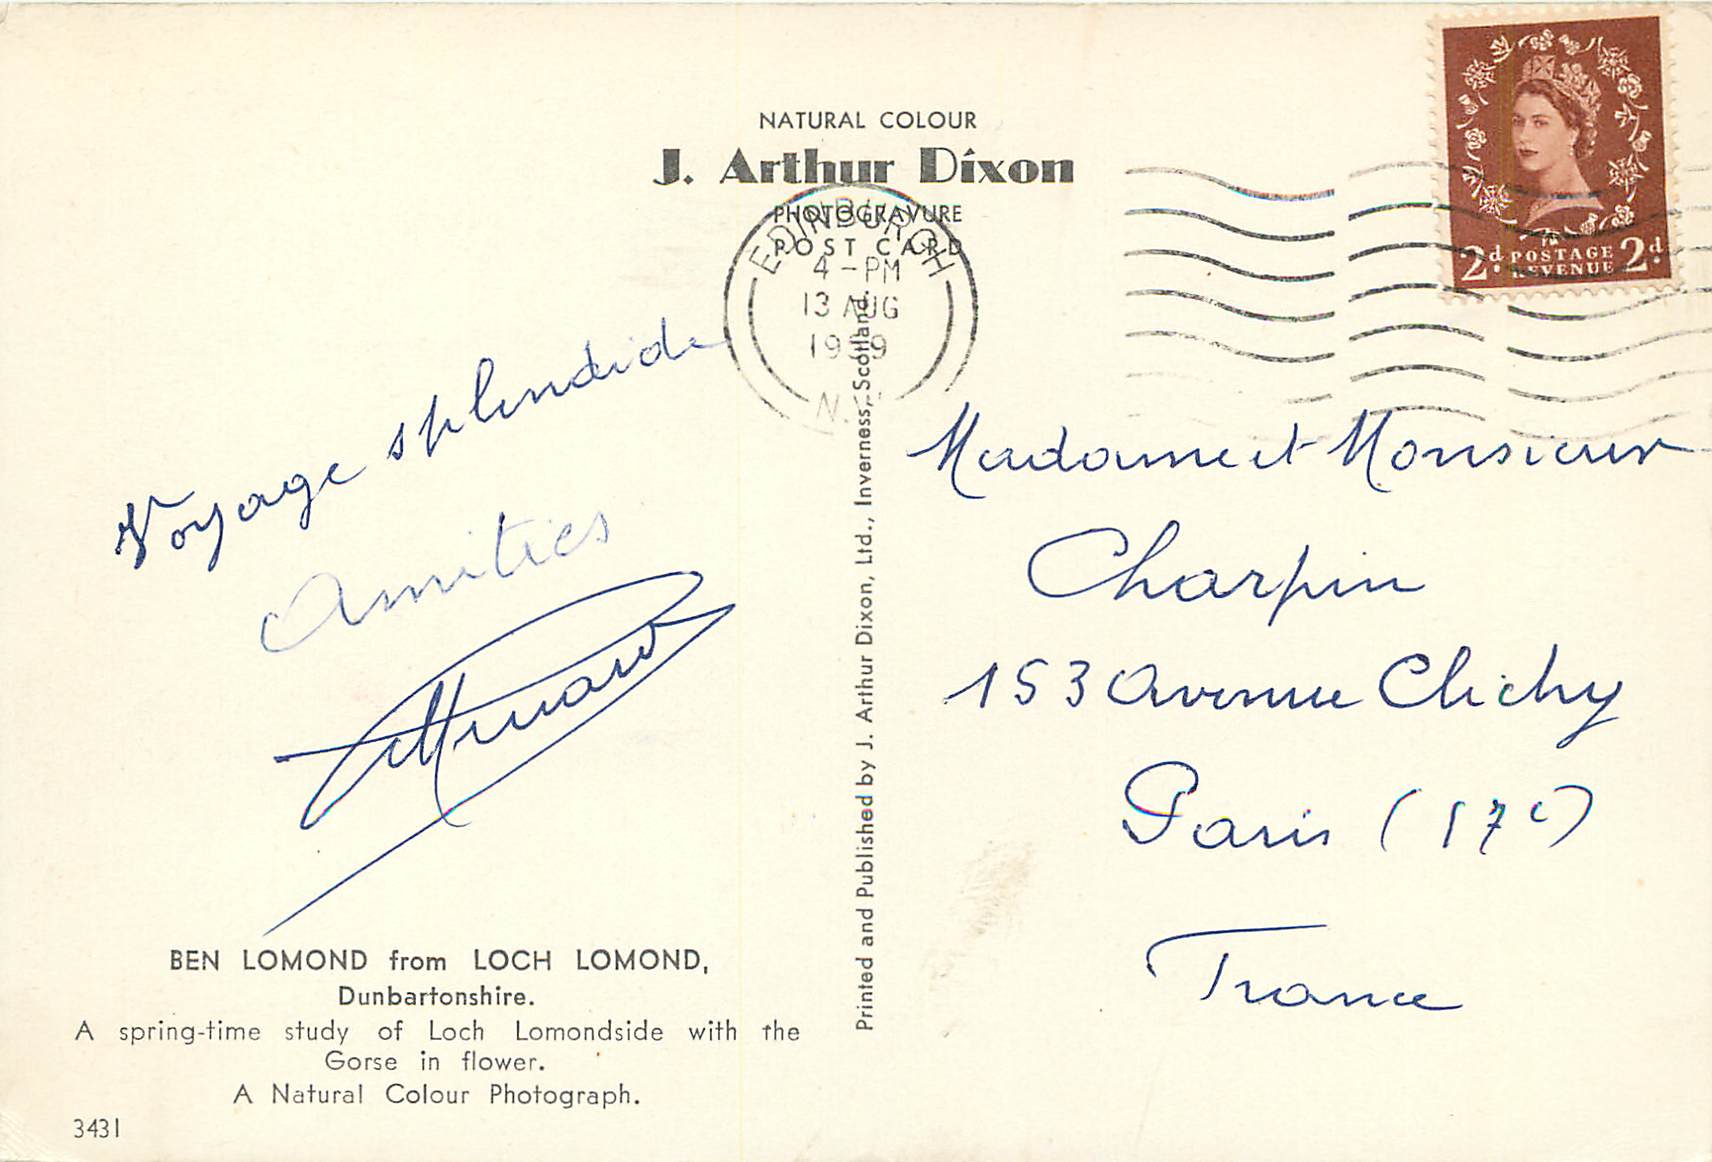 NATURAL COLOUR
J. Arthur Dixon
PHOTOGRAVURE
POST CARD
EDINBURGH
4 - PM
13 AUG
1959
2d. POSTAGE 2d.
REVENUE
Voyage splendide
Amitiés
Madame et Monsieur
Charpin
153 Avenue Clichy
Paris (17e)
France
Printed and Published by J. Arthur Dixon, Ltd., Inverness, Scotland.
BEN LOMOND from LOCH LOMOND,
Dunbartonshire.
A spring-time study of Loch Lomondside with the
Gorse in flower.
A Natural Colour Photograph.
3431